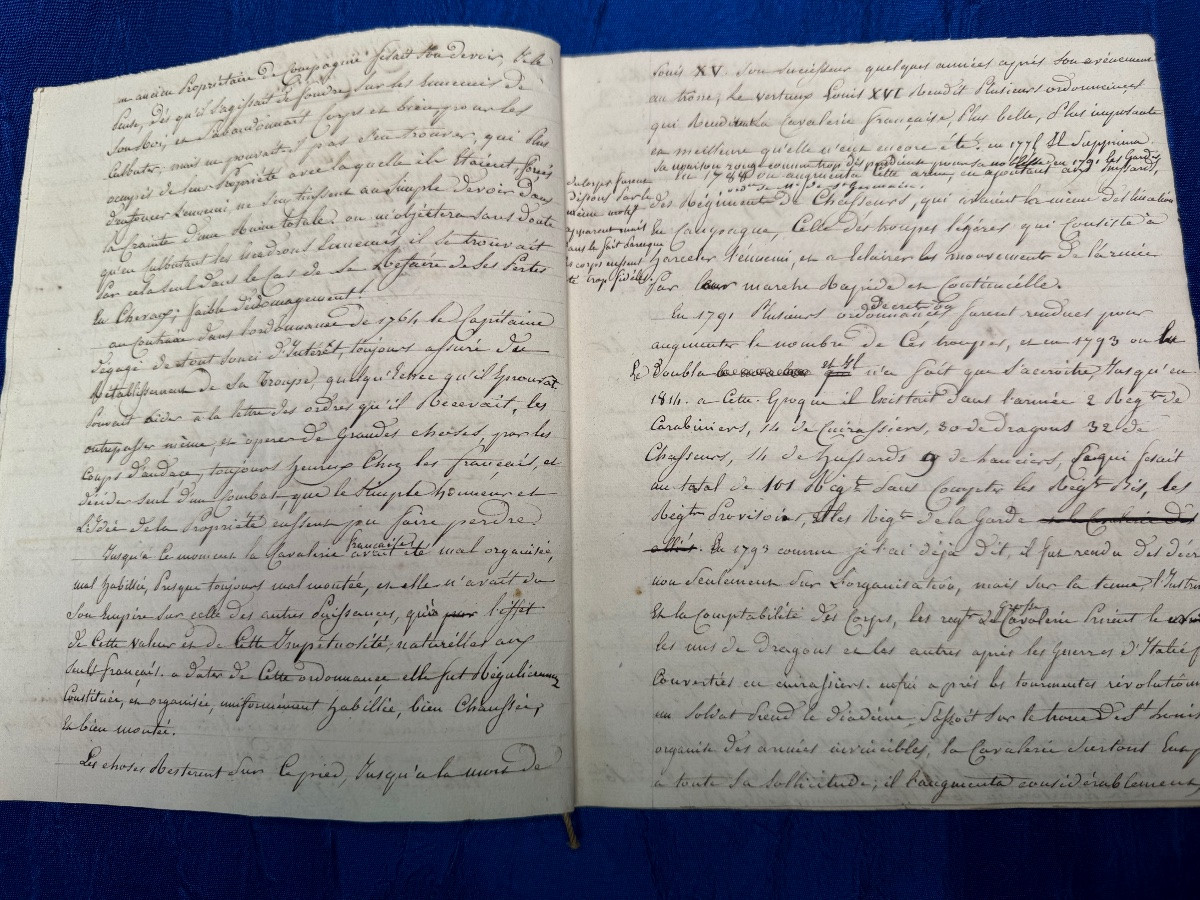 un ancien Propriétaire de Compagnie fesait son devoir, il le
Sent, dès qu'il s'agissait de fondre sur les Ennemis de
Son Roi, et s'abandonnait Corps et bien pour les
Culbuter, mais ne pouvait-il pas s'en trouver, qui Plus
occupés de leur Propriété avec laquelle ils étaient forcés
d'affouer l'ennemi, ne s'en tinssent au simple devoir dans
la Crainte d'une Ruine totale? on m'objectera sans doute
qu'en Culbutant les Escadrons Ennemis, il se trouvait
Par cela seul dans le Cas de se Refaire de ses Pertes
En Chevaux; faible dédomagement!
au Contraire dans l'ordonnance de 1764 le Capitaine
dégagé de tout souci d'Intérêt, toujours assuré du
Rétablissement de sa Troupe, quelqu'Echec qu'il Eprouvat
Pouvait aider à la lettre des ordres qu'il Recevait, les
outrepasser même, et opérer de Grandes choses, par les
Coups d'audace, toujours heureux Chez les français, et
décider seul d'un Combat que le Simple honneur et
L'Idée de la Propriété eussent pu faire perdre.
Jusqu'a ce moment la Cavalerie française avait été mal organisée,
mal habillée, Presque toujours mal montée, et elle n'avait du
Son Empire sur celle des autres Puissances, qu'à l'effet
de Cette Valeur et de Cette Impétuosité, naturelles aux
seuls français. a dater de Cette ordonnance elle fut Régulièrement
Constituée, et organisée, uniformément habillée, bien Chaussée,
et bien montée.
Les choses Resterent Sur Ce pied, Jusqu'à la mort de
Louis XV. Son Successeur quelques années après son avénement
au trône, Le vertueux Louis XVI Rendit Plusieurs ordonnances
qui Rendirent la Cavalerie française, Plus belle, Plus importante
et meilleure qu'elle n'eut encore été. en 1775 Il Supprima
Sa maison rouge comme trop dispendieuse pour sa noblesse en 1791 les Gardes
en 1788 on augmenta Cette arme, en ajoutant aux hussards,
de Mr de St Germain.
du Corps furent
dissous Par le
même motif
apparent mais
dans le fait parceque
ces corps eussent
été trop fidèles.
des Régiment de Chasseurs, qui avaient la même destination
En Campagne, Celle des troupes légères qui Consiste à
harceler l'ennemi, et à Eclairer les mouvements de l'armée
Par leur marche Rapide et Continuelle.
En 1791 Plusieurs decrets ou ordonnances furent rendues pour
augmenter le nombre de Ces troupes, et en 1793 on le
Re Doubla et Il n'a fait que s'accroître, Jusqu'en
1814. a Cette Epoque il Existait dans l'armée 2 Regts de
Carabiniers, 14 de Cuirassiers, 30 de dragons 32 de
Chasseurs, 14 de hussards 9 de Lanciers, Ce qui fesait
au total de 101 Régts sans Compter les Régts Bis, les
Régts Provisoires et les Régts de la Garde et la Cavalerie des
alliés. En 1793 comme je l'ai déjà dit, il fut rendu des décre
non Seulement Sur L'organisation, mais sur la tenue, l'Instru
Et la Comptabilité des Corps, les regts de grosse Cavalerie Prirent le
les uns de Dragons et les autres après les Guerres d'Italie f
Convertis en cuirassiers. enfin après les tourmentes révolution
un soldat Prend le diadème, s'assoit sur le trône de St Louis
organise des armées invincibles, la Cavalerie Surtout
à toute sa sollicitude; il l'augmenta considérablement